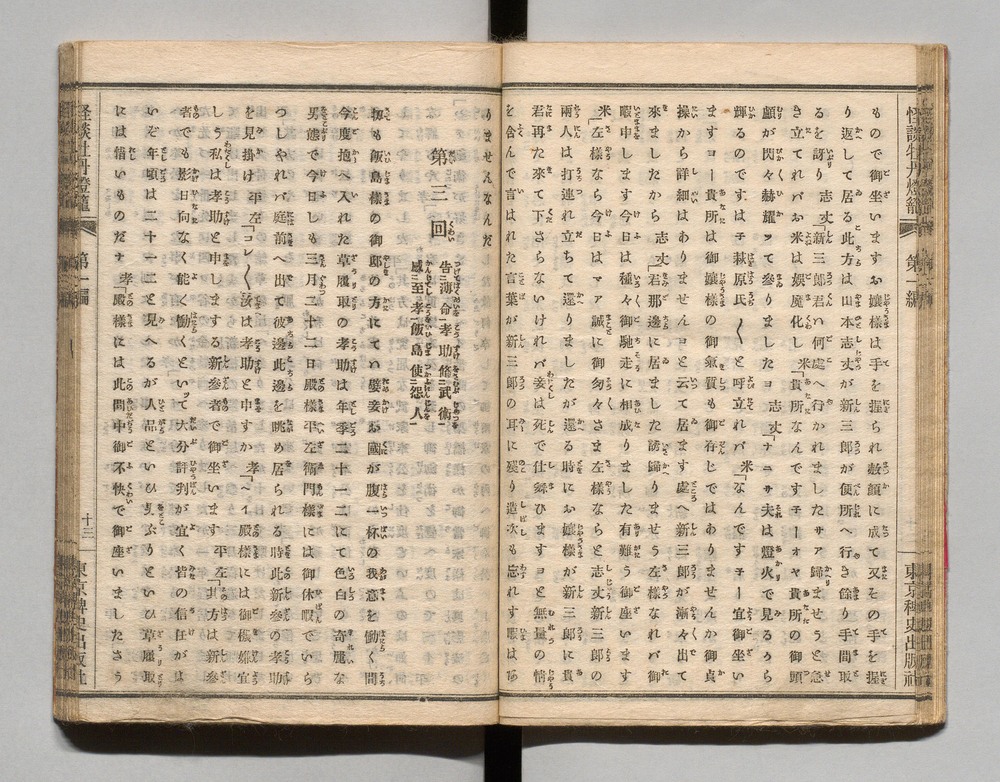 怪談牡丹燈籠
第一編
東京稗史出版社
もので御坐いますお嬢様は手を握られ赧顔に成て又その手を握
り返して居る此方は山本志丈が新三郎が便所へ行き餘り手間取
るを訝り 志丈「新三郎君ハ何處へ行かれましたサア歸ませうと急
き立てればお米は娯魔化し 米「貴所なんですチーオヤ貴所の御頭
顱が閃々赫耀ッて參りましたヨ 志丈「ナニサ夫は燈火で見るから
輝るのですは子萩原氏〳〵と呼立れバ 米「なんですチー宜御坐い
ますヨー貴所は御嬢様の御氣質も御存じではありませんか御貞
操から詳細はありませんヨと云て居ます處へ新三郎が漸々出て
來ましたから 志丈「君那邊に居ました誘歸りませう左様なれバ御
暇申します今日は種々御馳走に相成りました有難う御座います
米「左様なら今日はマア誠に御匆々さま左様ならと志丈新三郎の
兩人は打連れ立ちて還りましたが還る時にお嬢様が新三郎に貴
君再た來て下さらないければ妾は死で仕舞ひますヨと無量の情
を含んで言はれた言葉が新三郎の耳に殘り造次も忘れす暇はあ
りませんなんだ
第三回
告薄命孝助脩武術
感至孝飯島使怨人
扨も飯島様の御邸の方にてハ嬖妾お國が腹一杯の我意を働く間
今度抱へ入れた草履取の孝助は年季二十一二にて色白の奇麗な
男態で今日しも三月二十二日殿様平左衛門様には御休暇でいら
つしやれバ庭前へ出て彼邊此邊を眺め居られる時此新參の孝助
を見掛け 平左「コレ〳〵汝は孝助と申すか 孝「ヘイ殿様には御機嫌宜
しう私は孝助と申しまする新參者で御坐います 平左「其方は新參
者でも影日向なく能く働くといッて大分評判が宜く皆の信任がよ
いぞ年頃は二十一二と見へるが人品といひ男ぶりといひ草履取
には惜いものだナ 孝「殿様には此間中御不快で御座いましたさう
怪談牡丹燈籠
第一編
十三
東京稗史出版社